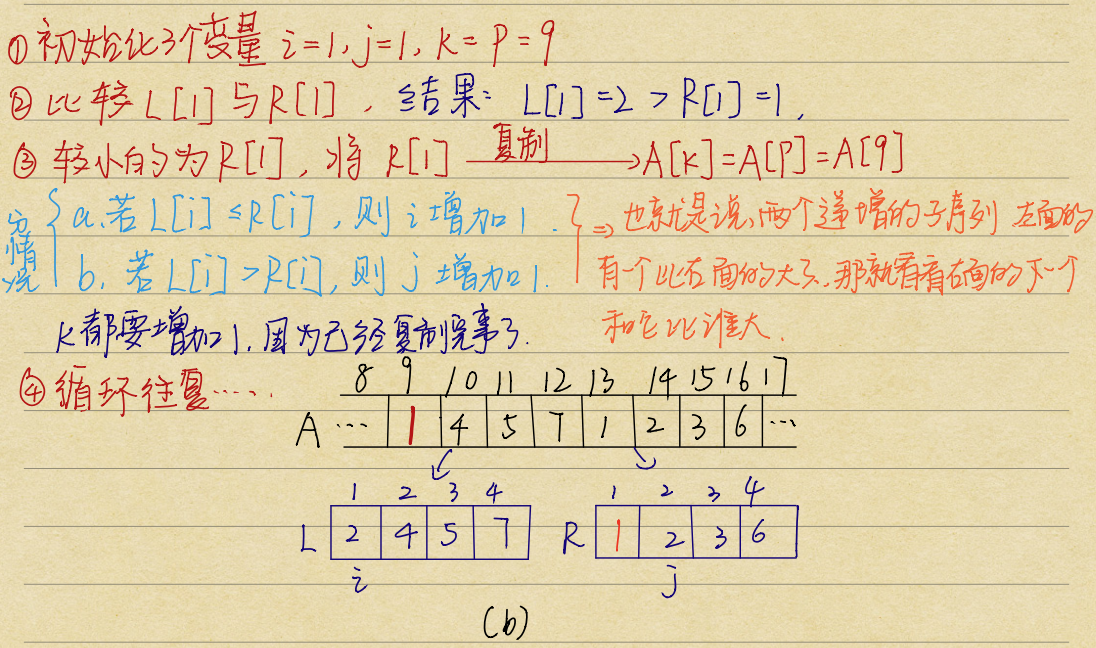 ① 初始化3个变量 i=1, j=1, K=P=9
② 比较 L[1] 与 R[1] , 结果: L[1]=2 > R[1]=1,
③ 较小的为 R[1] , 将 R[1] 复制 → A[K]=A[P]=A[9]
分情况
a.若 L[i] ≤ R[i] , 则 i 增加1.
b. 若 L[i] > R[i], 则 j 增加1.
⇒ 也就是说,两个递增的子序列 左面的
有一个比右面的大了,那就看看右面的下一个
和它比谁大.
K都要增加1, 因为已经复制完事了.
④ 循环往复……
8 9 10 11 12 13 14 15 16 17
A … 1 4 5 7 1 2 3 6 …
1 2 3 4
L 2 4 5 7
i
1 2 3 4
R 1 2 3 6
j
(b)